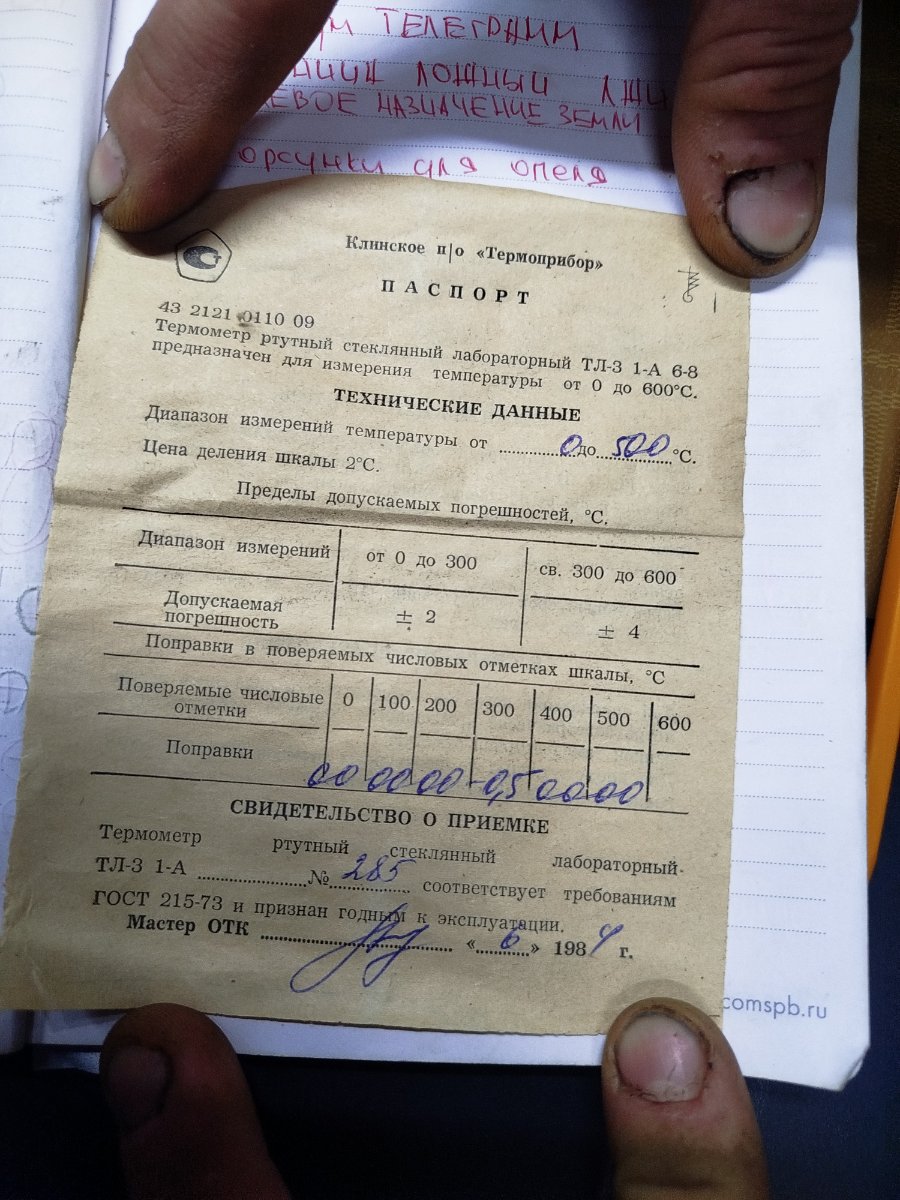 ТЕЛЕГРАММ
ЛОЖНЫЙ
НАЗНАЧЕНИЕ ЗЕМЛИ
для опеля
Клинское п|о «Термоприбор»
ПАСПОРТ
43 2121 0110 09
Термометр ртутный стеклянный лабораторный ТЛ-3 1-А 6-8
предназначен для измерения температуры от 0 до 600°С.
ТЕХНИЧЕСКИЕ ДАННЫЕ
Диапазон измерений температуры от ..............0до...500...°С.
Цена деления шкалы 2°С.
Пределы допускаемых погрешностей, °С.
Диапазон измерений от 0 до 300 св. 300 до 600
Допускаемая
погрешность ± 2 ± 4
Поправки в поверяемых числовых отметках шкалы, °С
Поверяемые числовые
отметки 0 100 200 300 400 500 600
Поправки 00 00 00 -0,5 00 00
СВИДЕТЕЛЬСТВО О ПРИЕМКЕ
Термометр ртутный стеклянный лабораторный
ТЛ-3 1-А ..................№ 285 соответствует требованиям
ГОСТ 215-73 и признан годным к эксплуатации.
Мастер ОТК .............................. «6» 1984 г.
comspb.ru